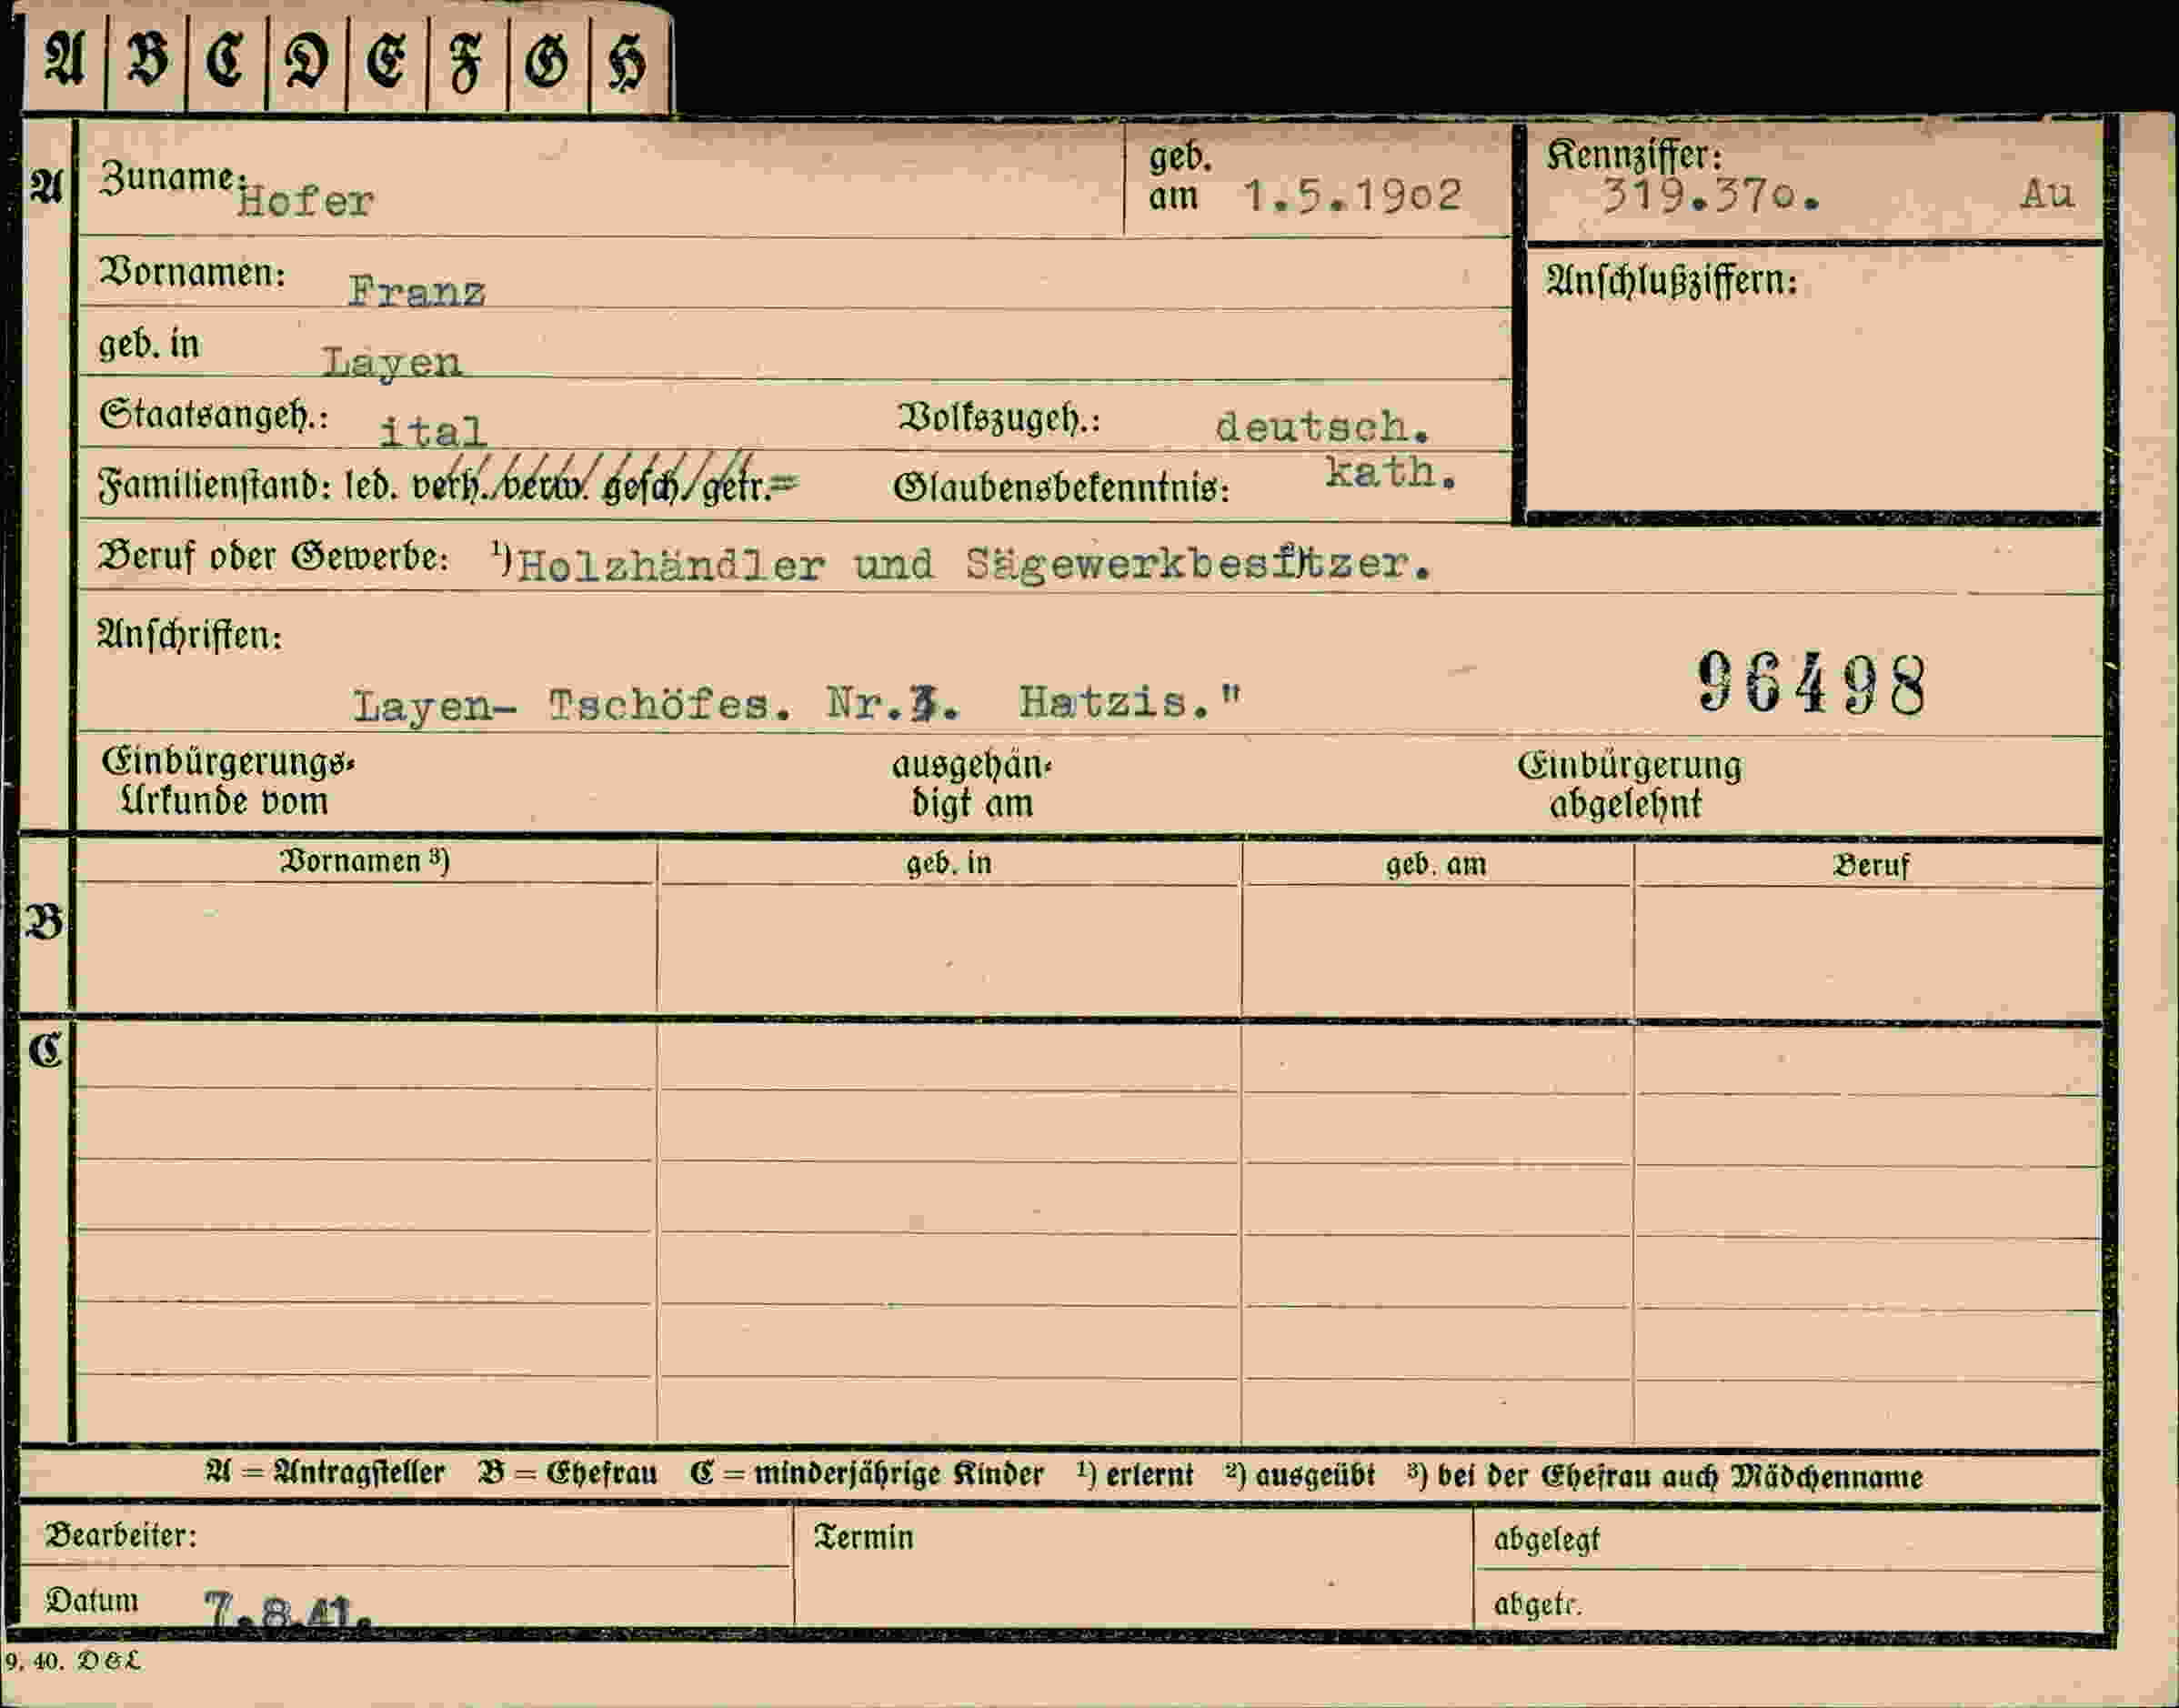 A B C D E F G H
A Zuname: Hofer geb. am 1.5.1902 Kennziffer: 319.370. Au
Vornamen: Franz Anschlußziffern:
geb. in Layen
Staatsangeh.: ital Volkszugeh.: deutsch.
Familienstand: led. verh. verw. gesch. getr.= Glaubensbekenntnis: kath.
Beruf oder Gewerbe: ¹) Holzhändler und Sägewerkbesitzer.
Anschriften:
Layen- Tschöfes. Nr. Hatzis." 96498
Einbürgerungs- ausgehän- Einbürgerung
Urkunde vom digt am abgelehnt
Vornamen ³) geb. in geb. am Beruf
B
C
A = Antragsteller B = Ehefrau C = minderjährige Kinder ¹) erlernt ²) ausgeübt ³) bei der Ehefrau auch Mädchenname
Bearbeiter: Termin abgelegt
Datum 7.8.41. abgetr.
9. 40. D&L